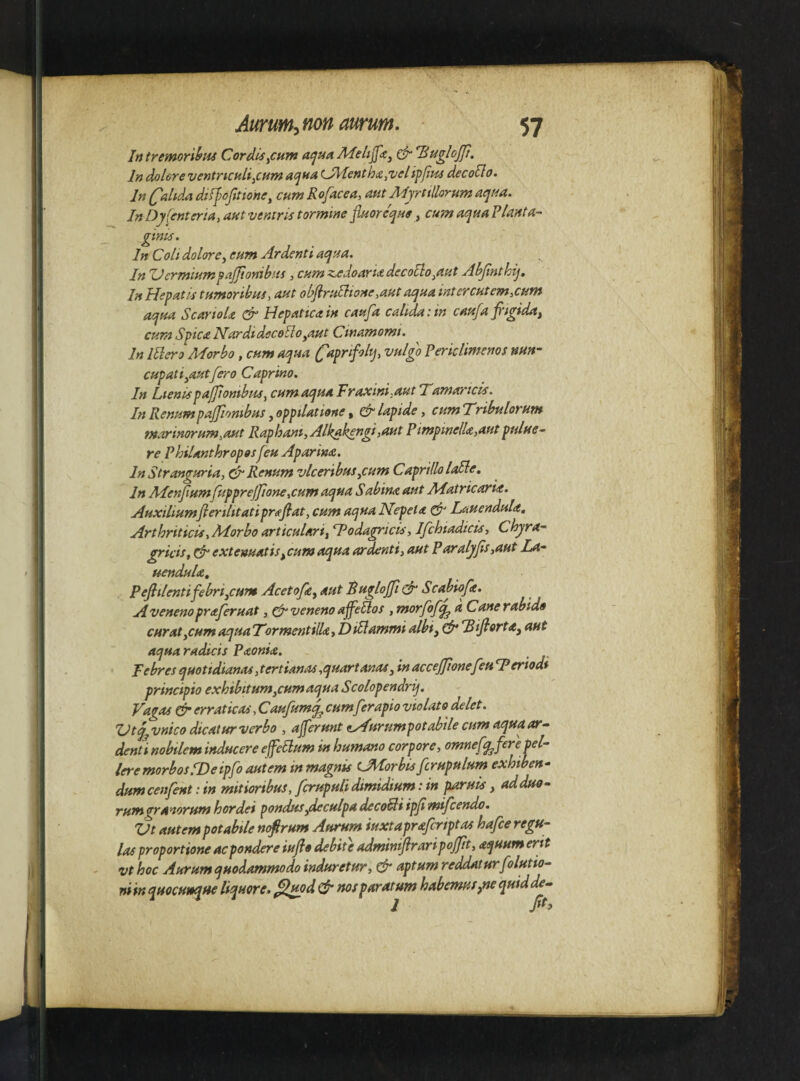 Aurum, non aurum. 57
In tremoribus Cordis, cum aqua Melissæ, & Bugloss.
In dolore ventriculi, cum aqua Mentha, vel ipsius decocto.
In Calida dispositione, cum Rosacea, aut Myrtillorum aqua.
In Dysenteria, aut ventris tormine fluoreque, cum aqua Planta-
ginis.
In Coli dolore, cum Ardenti aqua.
In Vermium passionibus, cum zedoariæ decocto, aut Absinthij.
In Hepatis tumoribus, aut obstructione, aut aqua intercutem, cum
aqua Scariolæ & Hepaticæ in causa calida: in causa frigida,
cum Spicæ Nardi decocto, aut Cinamomi.
In Ictero Morbo, cum aqua Caprifolij, vulgo Periclimenos nun-
cupati, aut fero Caprino.
In Lienis passionibus, cum aqua Fraxini, aut Tamaricis.
In Renum passionibus, oppilatione, & lapide, cum Tribulorum
marinorum, aut Raphani, Alkakengi, aut Pimpinellæ, aut pulue-
re Philanthropos seu Aparinæ.
In Stranguria, & Renum vlceribus, cum Caprillo lacte.
In Mensium suppressione, cum aqua Sabinæ aut Matricariæ.
Auxilium sterilitati præstat, cum aqua Nepetæ & Lauendulæ.
Arthriticis, Morbo articulari, Podagricis, Ischiadicis, Chyra-
gricis, & extenuatis, cum aqua ardenti, aut Paralysis, aut La-
uendulæ.
Pestilenti febri, cum Acetosæ, aut Buglossi & Scabiosæ.
A veneno præseruat, & veneno affectos, morsosq; à Cane rabido
curat, cum aqua Tormentillæ, Dictammi albi, & Bistortæ, aut
aqua radicis Pæoniæ.
Febres quotidianas, tertianas, quartanas, in accessione seu Periodi
principio exhibitum, cum aqua Scolopendrij.
Vagas & erraticas, Causumq; cum serapio violato delet.
Vt q; vnico dicatur verbo, asserunt Aurum potabile cum aqua ar-
denti nobilem inducere effectum in humano corpore, omnesq; fere pel-
lere morbos. De ipso autem in magnis Morbis scrupulum exhiben-
dum censent: in mitioribus, scrupuli dimidium: in paruis, ad duo-
rum granorum hordei pondus, de culpa decocti ipsi miscendo.
Vt autem potabile nostrum Aurum iuxta præscriptas hasce regu-
las proportione ac pondere iusto debitè administrari possit, æquum erit
vt hoc Aurum quodammodo induretur, & aptum reddatur solutio-
ni in quocunque liquore. Quod & nos paratum habemus, ne quid de-
I sit,